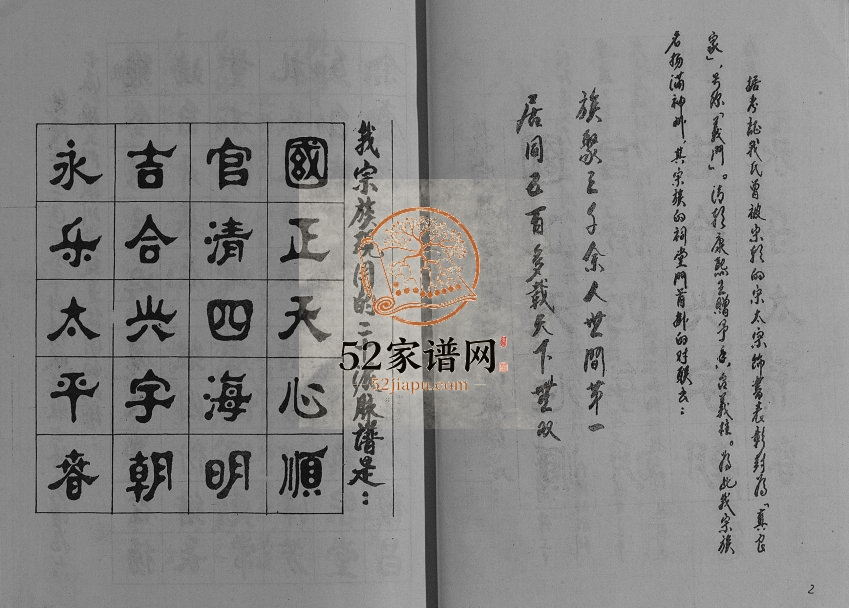 据考证我氏曾被宋朝的宋太宗御书表彰封为「真良
家」，号称「義门」。清朝康熙王赠予台義柱。为此我宗族
名扬满神州，其宗族的祠堂门首卦的对联云：
族聚三千余人世間第一
居同五百多载天下無双
2
我宗族现用的二脉譜是：
國正天心順
官清四海明
吉合兴字朝
永乐太平春
52家谱网
52jiapu.com